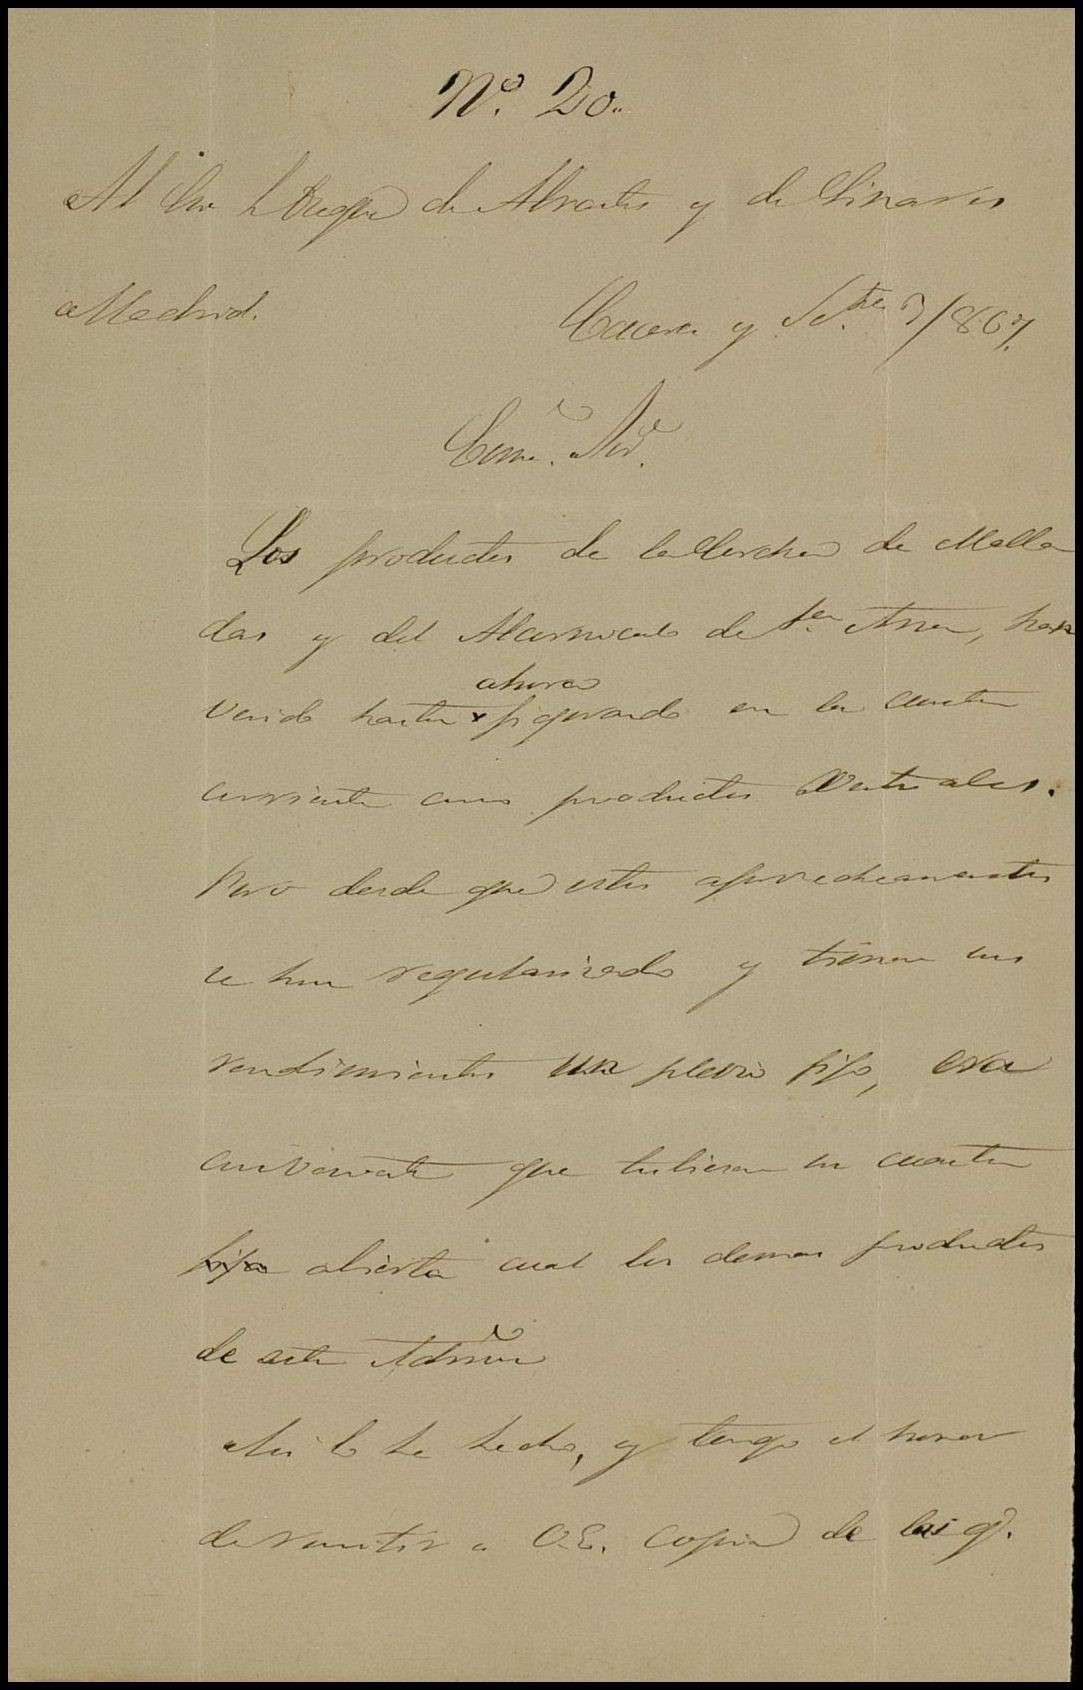 Nº. 20.
Al Exmo Sr Duque de Abrantes y de Linares
Madrid.
Caceres y Setbre 3/867.
Exmo. Sor.
Los productos de la Corcha de Malla
das y del Alcornocal de Sta Ana, han
venido hasta ahora figurando en la cuenta
corriente como productos eventuales.
Pero desde que estos aprovechamientos
se han regularizado y tienen sus
rendimientos un plazo fijo, era
conveniente que tubieran su cuenta
fija abierta cual los demas productos
de esta Admon
Asi lo he hecho, y tengo el honor
de remitir a V.E. copia de las q.